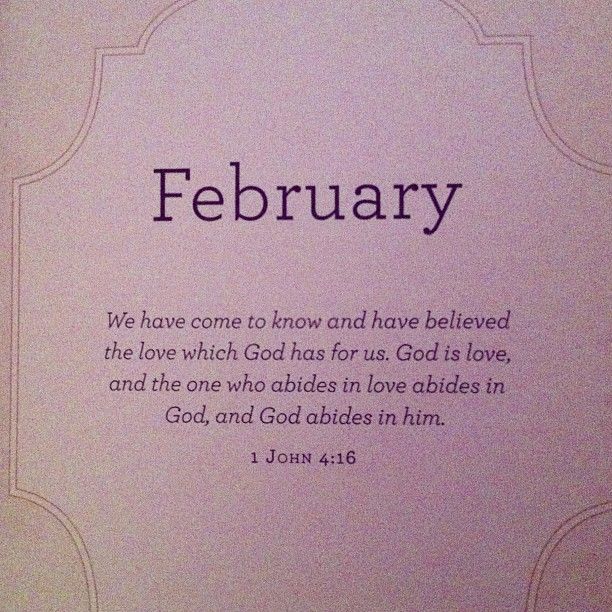 February
We have come to know and have believed
the love which God has for us. God is love,
and the one who abides in love abides in
God, and God abides in him.
1 John 4:16